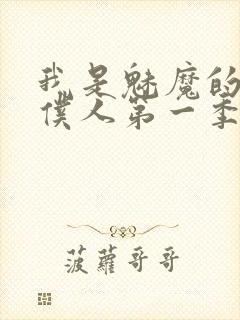 我是魅魔的
僕人第一季
菠蘿哥哥